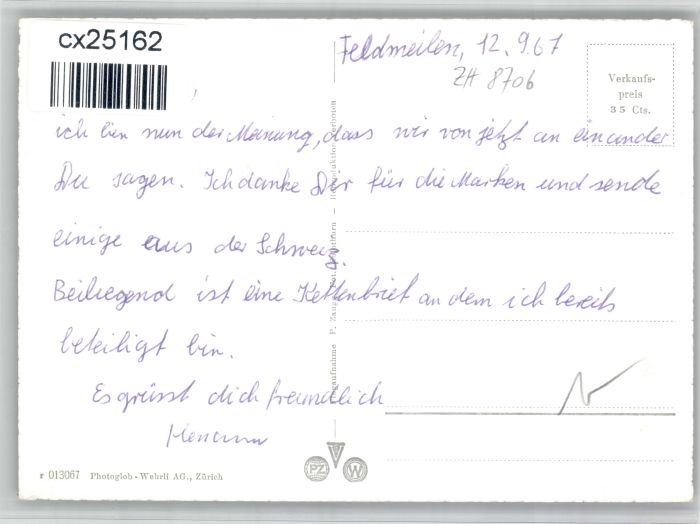 cx25162
Feldmeilen, 12. 9. 67
ZH 8706
Verkaufs-
preis
35 Cts.
ich bin nun der Meinung, dass wir von jetzt an einander
Du sagen. Ich danke Dir für die Marken und sende
einige aus der Schweiz.
Beiliegend ist eine Kettenbrief an dem ich bereits
beteiligt bin.
Es grüsst dich freundlich
r 013067 Photoglob-Wehrli AG., Zürich
PZ W